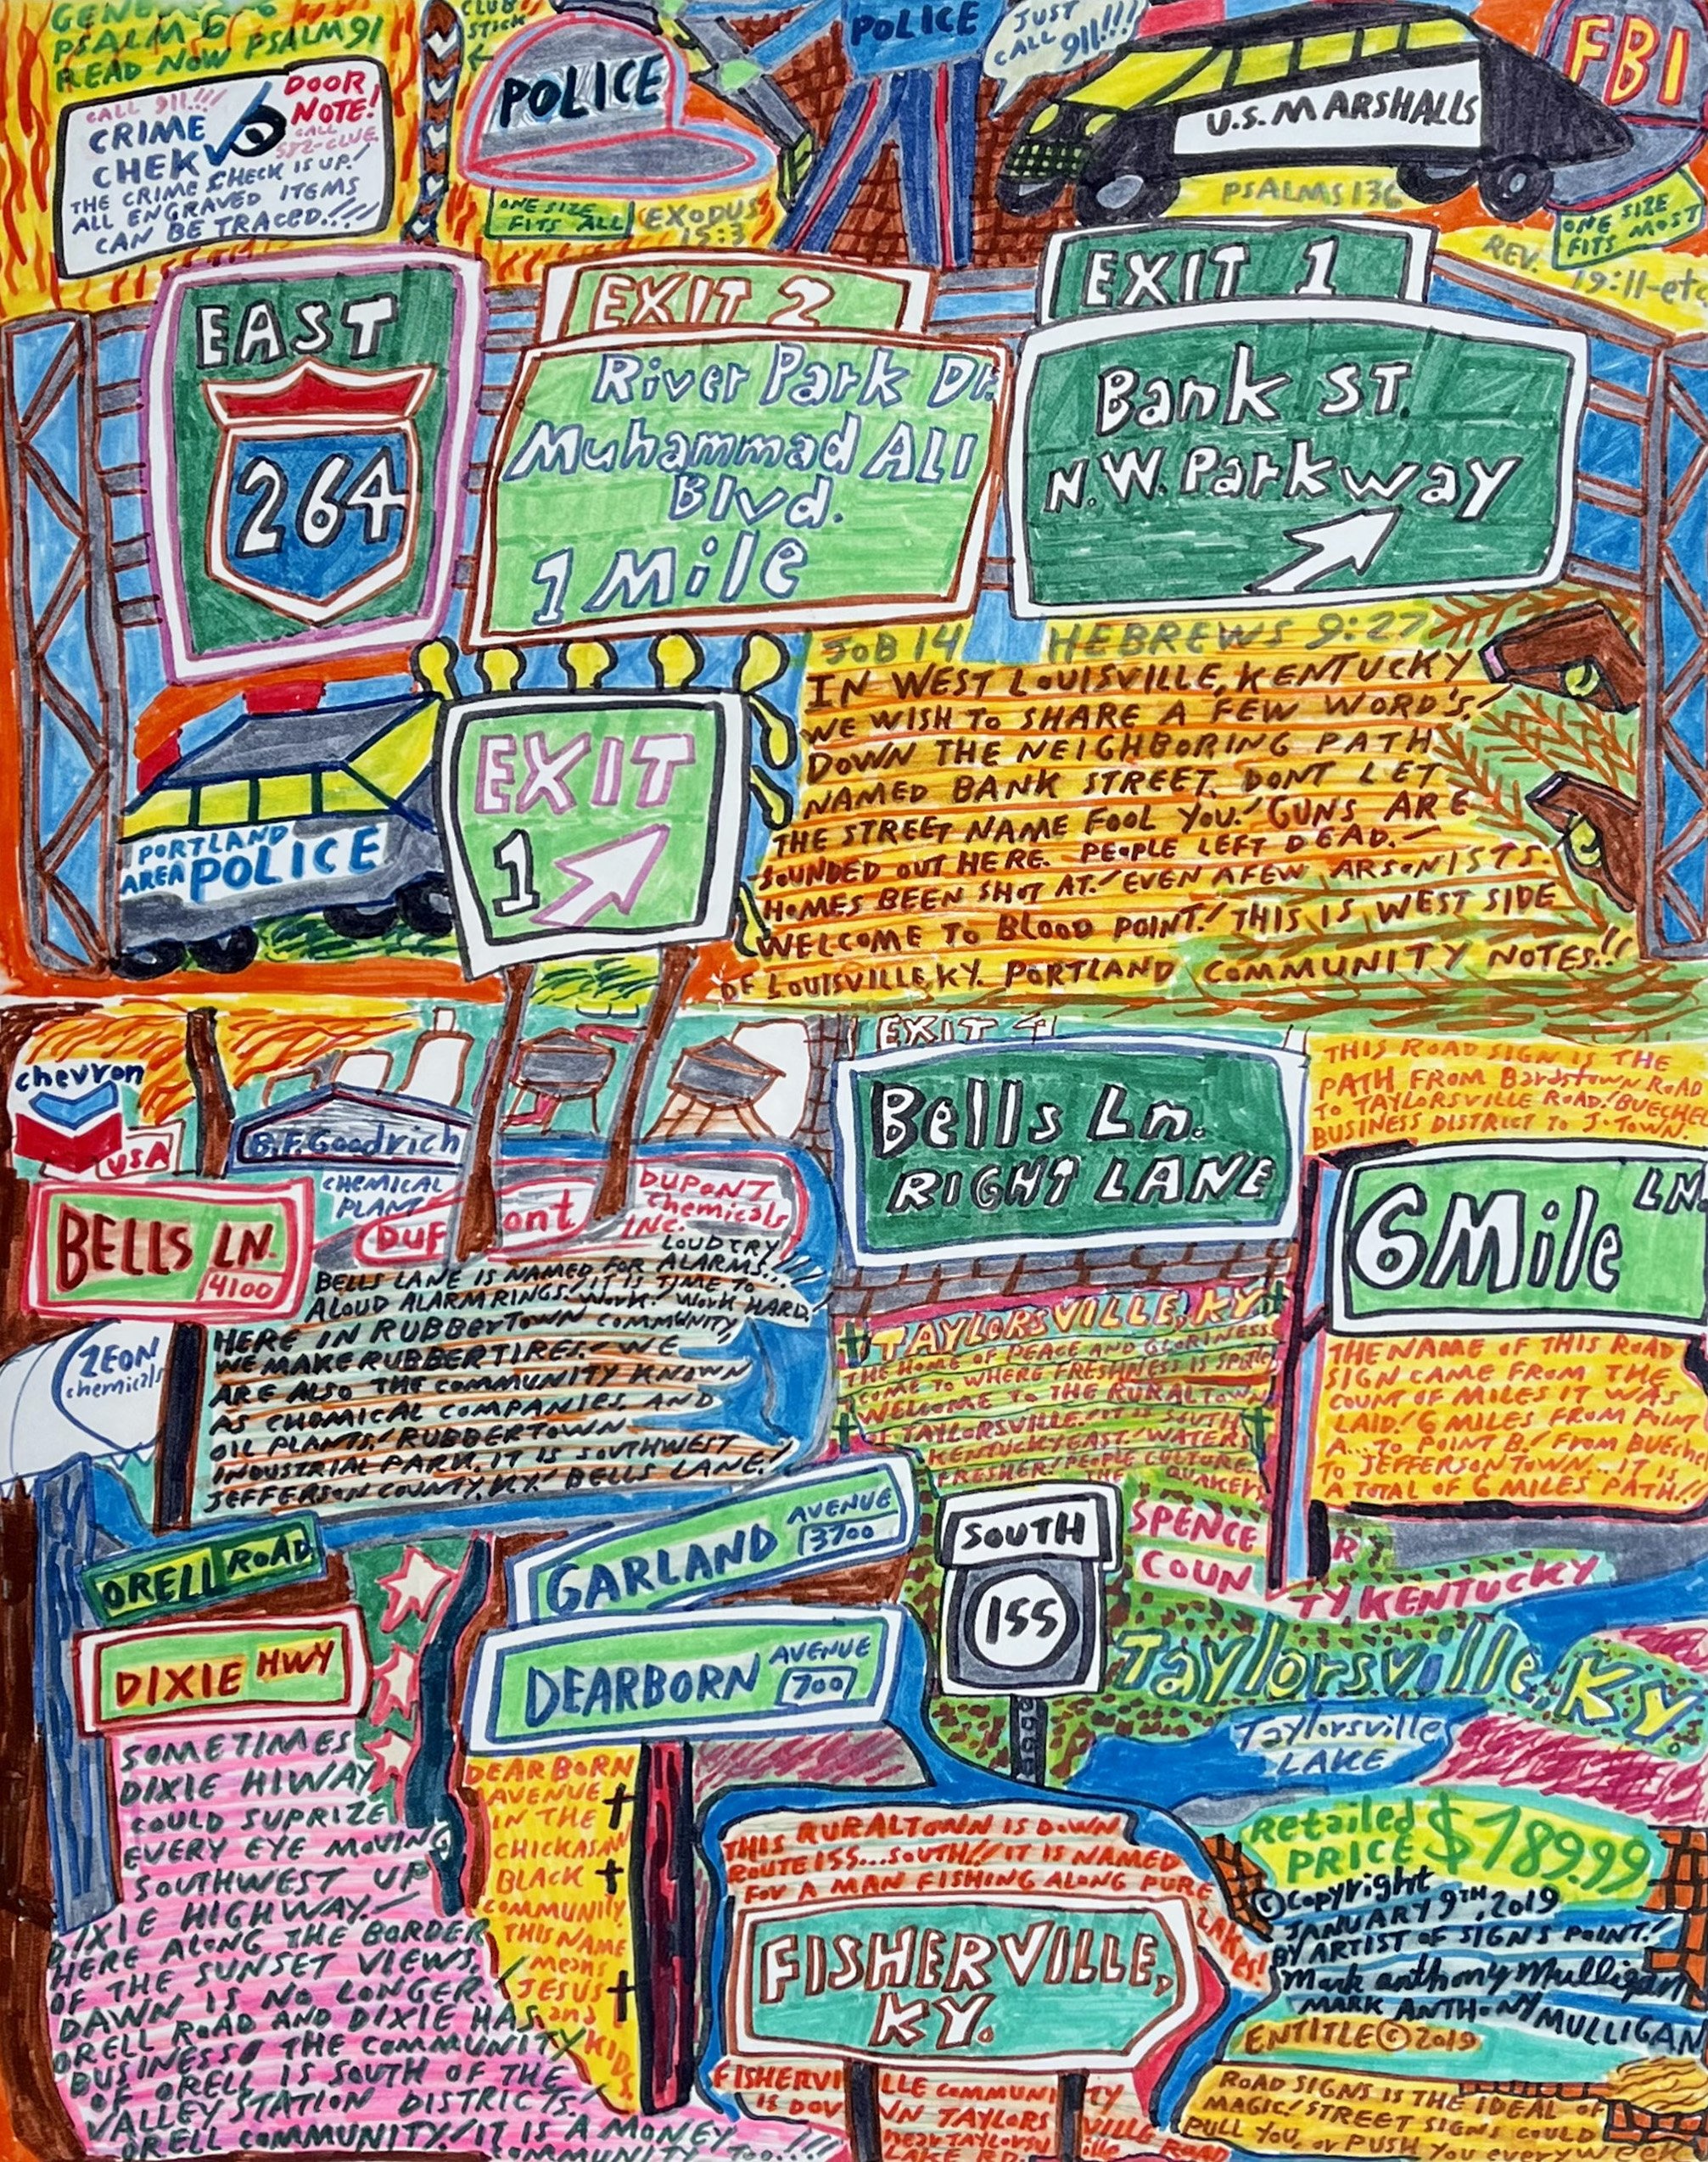 PSALM 6
READ NOW PSALM 91
CALL 911!!!
CRIME
CHEK
DOOR
NOTE!
CALL
582-CLUE.
THE CRIME CHECK IS UP!
ALL ENGRAVED ITEMS
CAN BE TRACED!!!
CLUB
STICK
POLICE
ONE SIZE
FITS ALL
EXODUS
15:3
POLICE
JUST
CALL 911!!!
U.S. MARSHALLS
PSALMS 136
FBI
ONE SIZE
FITS MOST
REV.
19:11-etc
EAST
264
EXIT 2
River Park Dr.
Muhammad ALI
Blvd.
1 Mile
EXIT 1
Bank ST.
N.W. Parkway
PORTLAND
AREA POLICE
EXIT
1
JOB 14 HEBREWS 9:27
IN WEST LOUISVILLE, KENTUCKY
WE WISH TO SHARE A FEW WORD'S!
DOWN THE NEIGHBORING PATH
NAMED BANK STREET. DONT LET
THE STREET NAME FOOL YOU! GUNS ARE
SOUNDED OUT HERE. PEOPLE LEFT DEAD.
HOMES BEEN SHOT AT! EVEN A FEW ARSONISTS.
WELCOME TO BLOOD POINT! THIS IS WEST SIDE
OF LOUISVILLE, KY. PORTLAND COMMUNITY NOTES!!
chevron
USA
B.F. Goodrich
CHEMICAL
PLANT
DUP ont
DUPONT
Chemicals
INC.
BELLS LN.
4100
LOUD CRY
BELLS LANE IS NAMED FOR ALARMS...
ALOUD ALARM RINGS! IT IS TIME TO
WORK! WORK HARD!
HERE IN RUBBERTOWN COMMUNITY,
WE MAKE RUBBER TIRES. WE
ARE ALSO THE COMMUNITY KNOWN
AS CHOMICAL COMPANIES, AND
OIL PLANTS! RUBBERTOWN
INDUSTRIAL PARK. IT IS SOUTHWEST
JEFFERSON COUNTY, KY! BELLS LANE!
ZEON
chemicals
EXIT 4
Bells Ln.
RIGHT LANE
THIS ROAD SIGN IS THE
PATH FROM BardsTown ROAD
TO TAYLORSVILLE ROAD! BUECHEL
BUSINESS DISTRICT TO J. TOWN.
6 Mile LN.
THE NAME OF THIS ROAD
SIGN CAME FROM THE
COUNT OF MILES IT WAS
LAID! 6 MILES FROM POINT
A... TO POINT B! FROM BUECHEL
TO JEFFERSONTOWN... IT IS
A TOTAL OF 6 MILES PATH!!
TAYLORSVILLE, KY
THE HOME OF PEACE AND GLORINESS
COME TO WHERE FRESHNESS IS
WELCOME TO THE RURAL TOWN
OF TAYLORSVILLE! IT IS SOUTH
KENTUCKY EAST! WATERS
FRESHER! PEOPLE CULTURE
THE QUAKERS
ORELL ROAD
DIXIE HWY
SOMETIMES
DIXIE HIWAY
COULD SUPRIZE
EVERY EYE MOVING
SOUTHWEST UP
DIXIE HIGHWAY!
HERE ALONG THE BORDER
OF THE SUNSET VIEWS,
DAWN IS NO LONGER.
ORELL ROAD AND DIXIE HAS
BUSINESS THE COMMUNITY
OF ORELL IS SOUTH OF THE
VALLEY STATION DISTRICTS!
ORELL COMMUNITY! IT IS A MONEY
COMMUNITY TOO...!!!
GARLAND AVENUE
3700
DEARBORN AVENUE
700
DEARBORN
AVENUE
IN THE
CHICKASAW
BLACK
COMMUNITY.
THIS NAME
means
JESUS
and
KIDS.
SOUTH
155
SPENCE R
COUN TY, KENTUCKY
Taylorsville, Ky.
Taylorsville
LAKE
THIS RURALTOWN IS DOWN
ROUTE 155...SOUTH!! IT IS NAMED
FOR A MAN FISHING ALONG PURE
Lakes!
FISHERVILLE,
KY.
FISHERVI LLE COMMUNI TY
IS DOW N TAYLORS VILLE ROAD
near TAYLORSV ille
LAKE RD.
Retailed
PRICE $789.99
© Copyright
JANUARY 9TH, 2019
BY ARTIST OF SIGNS POINT!
Mark anthony Mulligan
MARK ANTHONY MULLIGAN
ENTITLE © 2019
ROAD SIGNS IS THE IDEAL OF
MAGIC! STREET SIGNS COULD
PULL YOU, or PUSH YOU every week